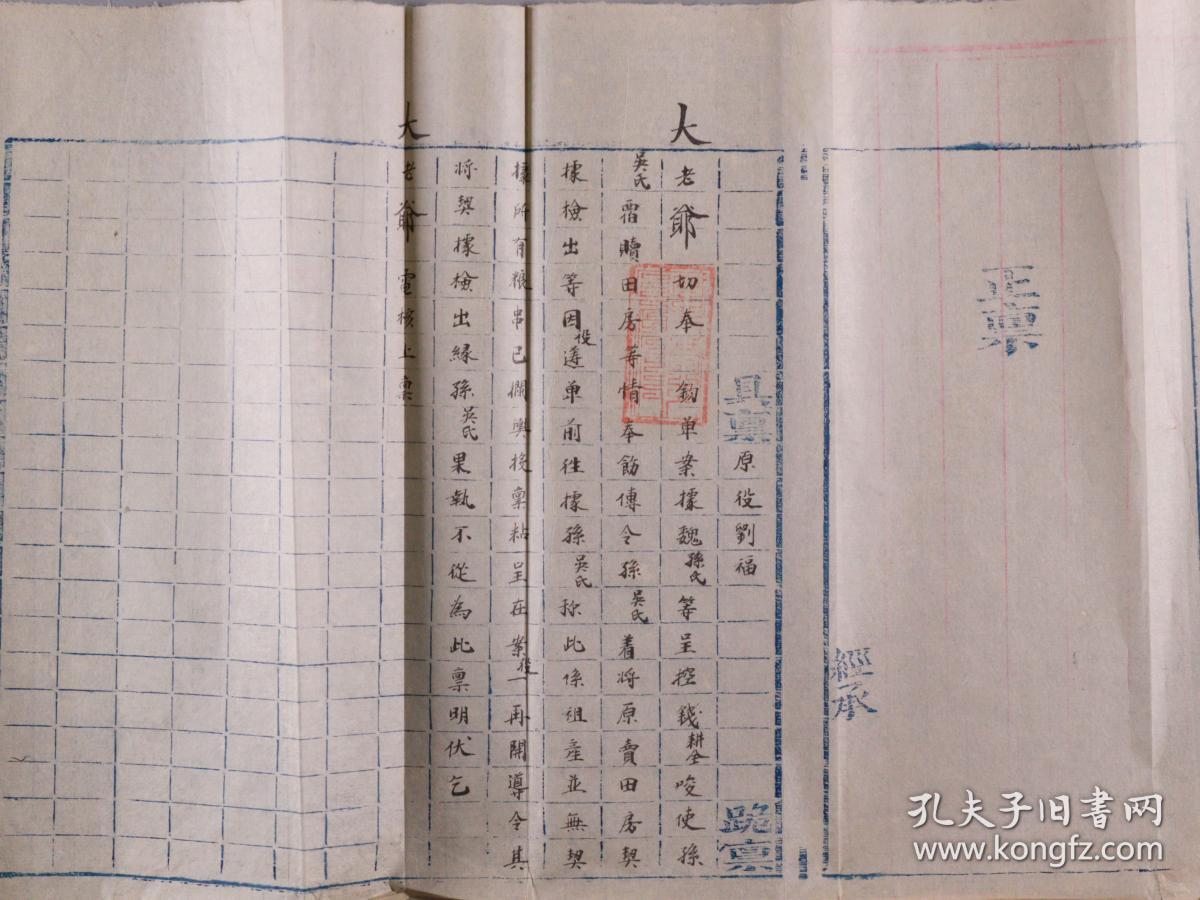 正稟
經承
具稟原役劉福
跪稟
大老爺切奉鈞单案據魏孫氏等呈控錢耕全唆使孫
吳氏霤贖田房等情奉飭傳令孫吳氏着將原賣田房契
據檢出等因役遵单前往據孫吳氏称此係祖產並無契
據所有粮串已攔輿挽稟粘呈在案役一再開導令其
将契據檢出緣孫吳氏果執不從為此稟明伏乞
大老爺電核上稟
孔夫子旧书网
www.kongfz.com